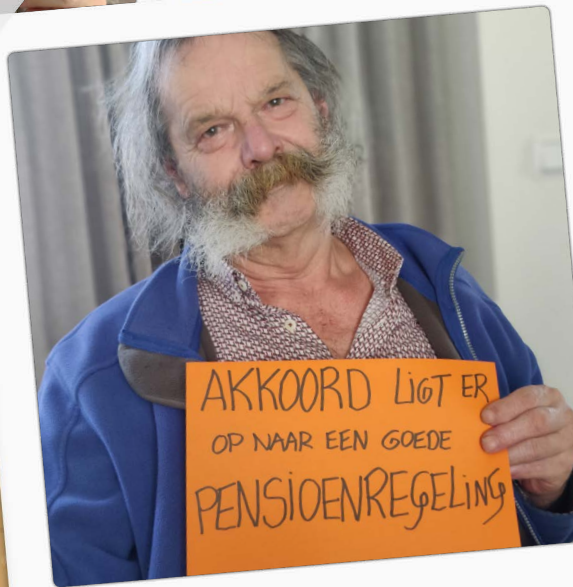 AKKOORD LIGT ER
OP NAAR EEN GOEDE
PENSIOENREGELING